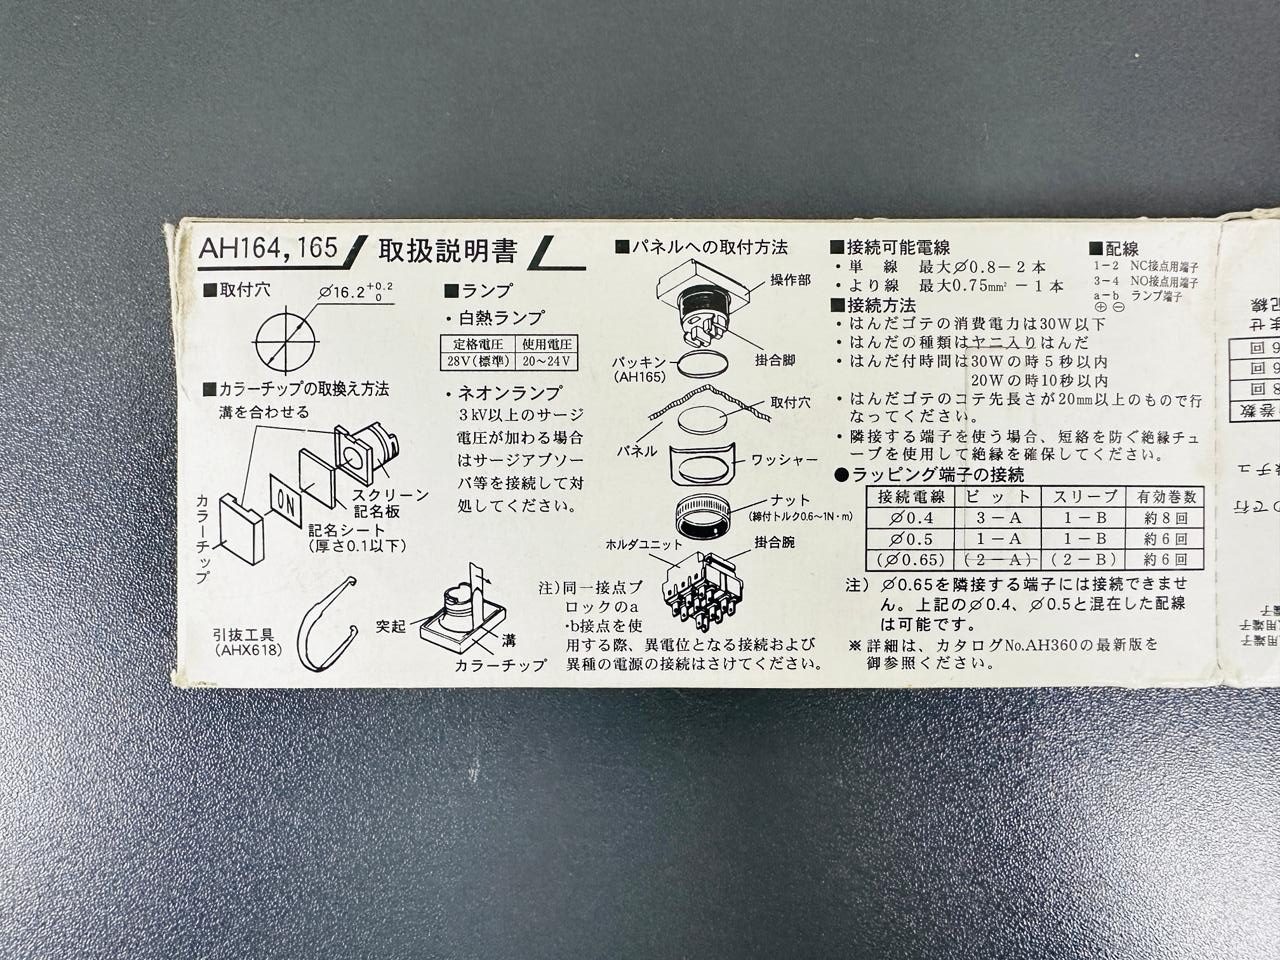 AH164, 165 取扱説明書
■取付穴
⌀16.2 +0.2 0
■カラーチップの取換え方法
溝を合わせる
カラーチップ
ON
スクリーン
記名板
記名シート
(厚さ0.1以下)
引抜工具
(AHX618)
突起
溝
カラーチップ
■ランプ
・白熱ランプ
定格電圧 使用電圧
28V(標準) 20〜24V
・ネオンランプ
3kV以上のサージ
電圧が加わる場合
はサージアブソー
バ等を接続して対
処してください。
■パネルへの取付方法
操作部
掛合脚
パッキン
(AH165)
取付穴
パネル
ワッシャー
ナット
(締付トルク0.6〜1N・m)
ホルダユニット
掛合腕
注)同一接点ブ
ロックのa
・b接点を使
用する際、異電位となる接続および
異種の電源の接続はさけてください。
■接続可能電線
・単線 最大⌀0.8−2本
・より線 最大0.75mm²−1本
■接続方法
・はんだゴテの消費電力は30W以下
・はんだの種類はヤニ入りはんだ
・はんだ付時間は30Wの時5秒以内
20Wの時10秒以内
・はんだゴテのコテ先長さが20mm以上のもので行
なってください。
・隣接する端子を使う場合、短絡を防ぐ絶縁チュ
ーブを使用して絶縁を確保してください。
●ラッピング端子の接続
接続電線 ビット スリーブ 有効巻数
⌀0.4 3−A 1−B 約8回
⌀0.5 1−A 1−B 約6回
(⌀0.65) (2−A) (2−B) 約6回
注) ⌀0.65を隣接する端子には接続できませ
ん。上記の⌀0.4、⌀0.5と混在した配線
は可能です。
※詳細は、カタログNo.AH360の最新版を
御参照ください。
■配線
1−2 NC接点用端子
3−4 NO接点用端子
a−b ランプ端子
⊕ ⊖